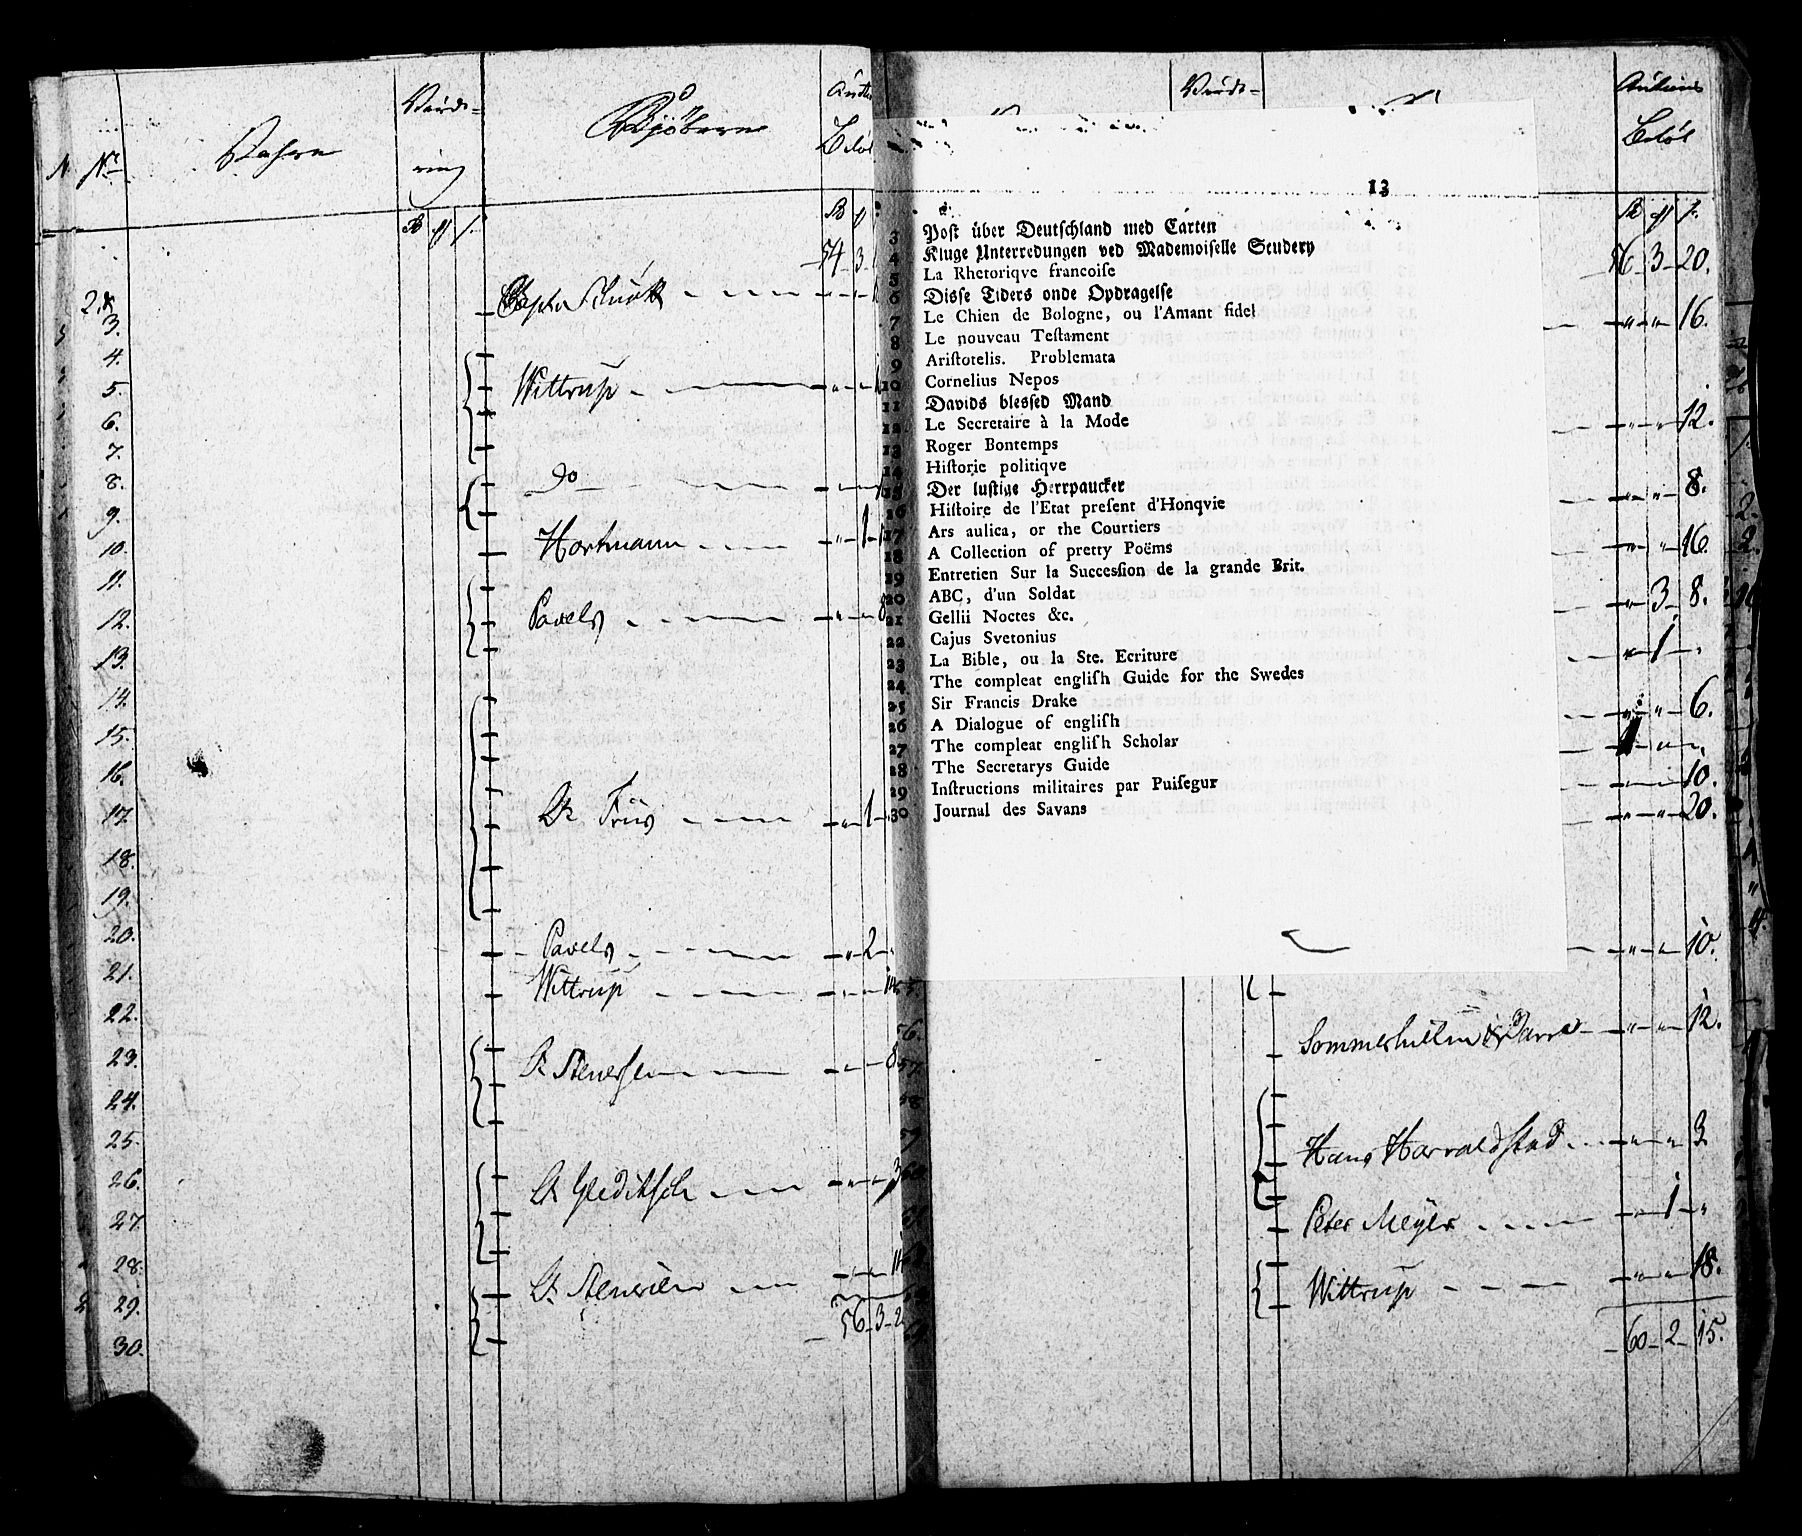 Vurde-
ring
Kjöberne
Belöb
No
54 3
2
3.
4.
5.
6.
7.
8.
9.
10.
11.
12.
13.
14.
15.
16.
17.
18.
19.
20.
21.
22.
23.
24.
25.
26.
27.
28.
29.
30.
Wittrup
do
Hortmann 1
Pavels 8
Lt Friis 1
Pavels 2
Wittrup
Lt Stenersen 8
Lt Gleditsch 3
Lt Stenersen
56 3 2
13
3 Post über Deutſchland med Carten
4 Kluge Unterredungen ved Mademoiſelle Scudery
5 La Rhetoriqve francoiſe
6 Disſe Tiders onde Opdragelſe
7 Le Chien de Bologne, ou l'Amant fidel
8 Le nouveau Teſtament
9 Ariſtotelis. Problemata
10 Cornelius Nepos
11 Davids blesſed Mand
12 Le Secretaire à la Mode
13 Roger Bontemps
14 Hiſtorie politiqve
15 Der luſtige Herrpaucker
16 Hiſtoire de l'Etat preſent d'Honqvie
17 Ars aulica, or the Courtiers
18 A Collection of pretty Poëms
19 Entretien Sur la Succesſion de la grande Brit.
20 ABC, d'un Soldat
21 Gellii Noctes &c.
22 Cajus Svetonius
23 La Bible, ou la Ste. Ecriture
24 The compleat engliſh Guide for the Swedes
25 Sir Francis Drake
26 A Dialogue of engliſh
27 The compleat engliſh Scholar
28 The Secretarys Guide
29 Inſtructions militaires par Puiſegur
30 Journal des Savans
Vurde-
Auctions
Belöb
56 3 20.
16.
12.
8.
16.
3 8.
1
6.
1
10.
20.
10.
12.
Hans Harraldstad 3
Peter Meyer 1 "
Wittrup 18.
60 2 15.